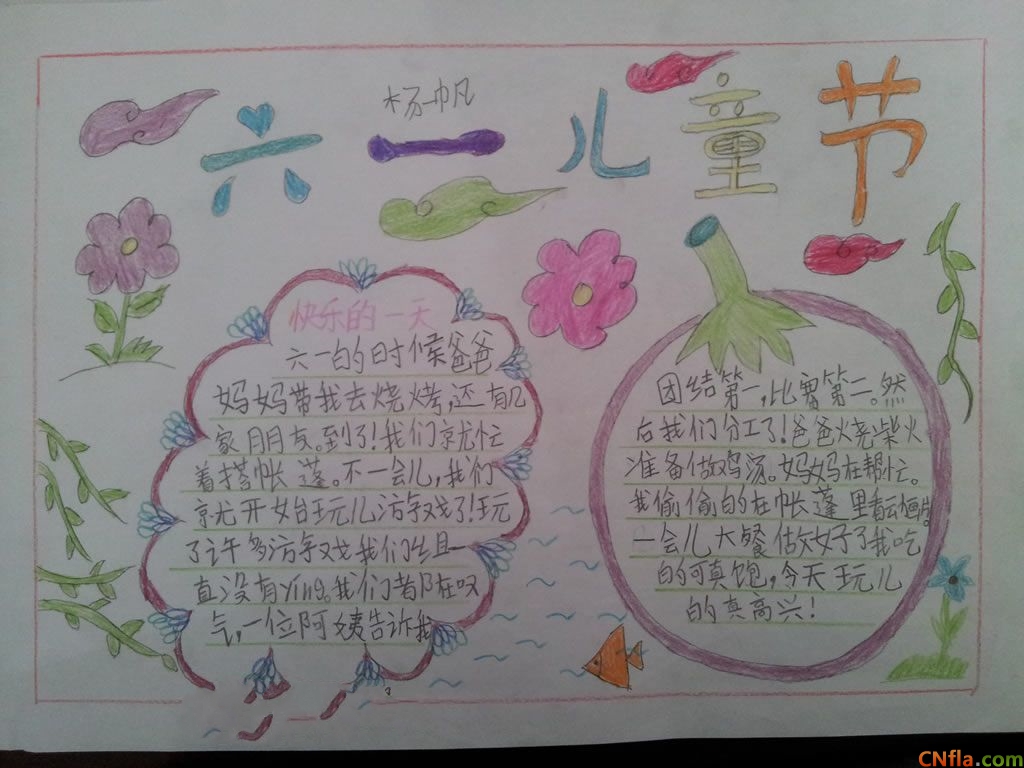 杨帆
六一儿童节
快乐的一天
六一的时候爸爸
妈妈带我去烧烤,还有几
家朋友。到了!我们就忙
着搭帐蓬。不一会儿,我们
就开始玩儿游戏了!玩
了许多游戏我们组一
直没有ying。我们都在叹
气,一位阿姨告诉我
团结第一,比赛第二。然
后我们分工了!爸爸烧柴火
准备做鸡汤。妈妈在帮忙。
我偷偷的在帐蓬里看动画片。
一会儿大餐做好了我吃
的可真饱,今天玩儿
的真高兴!
CNfla.com